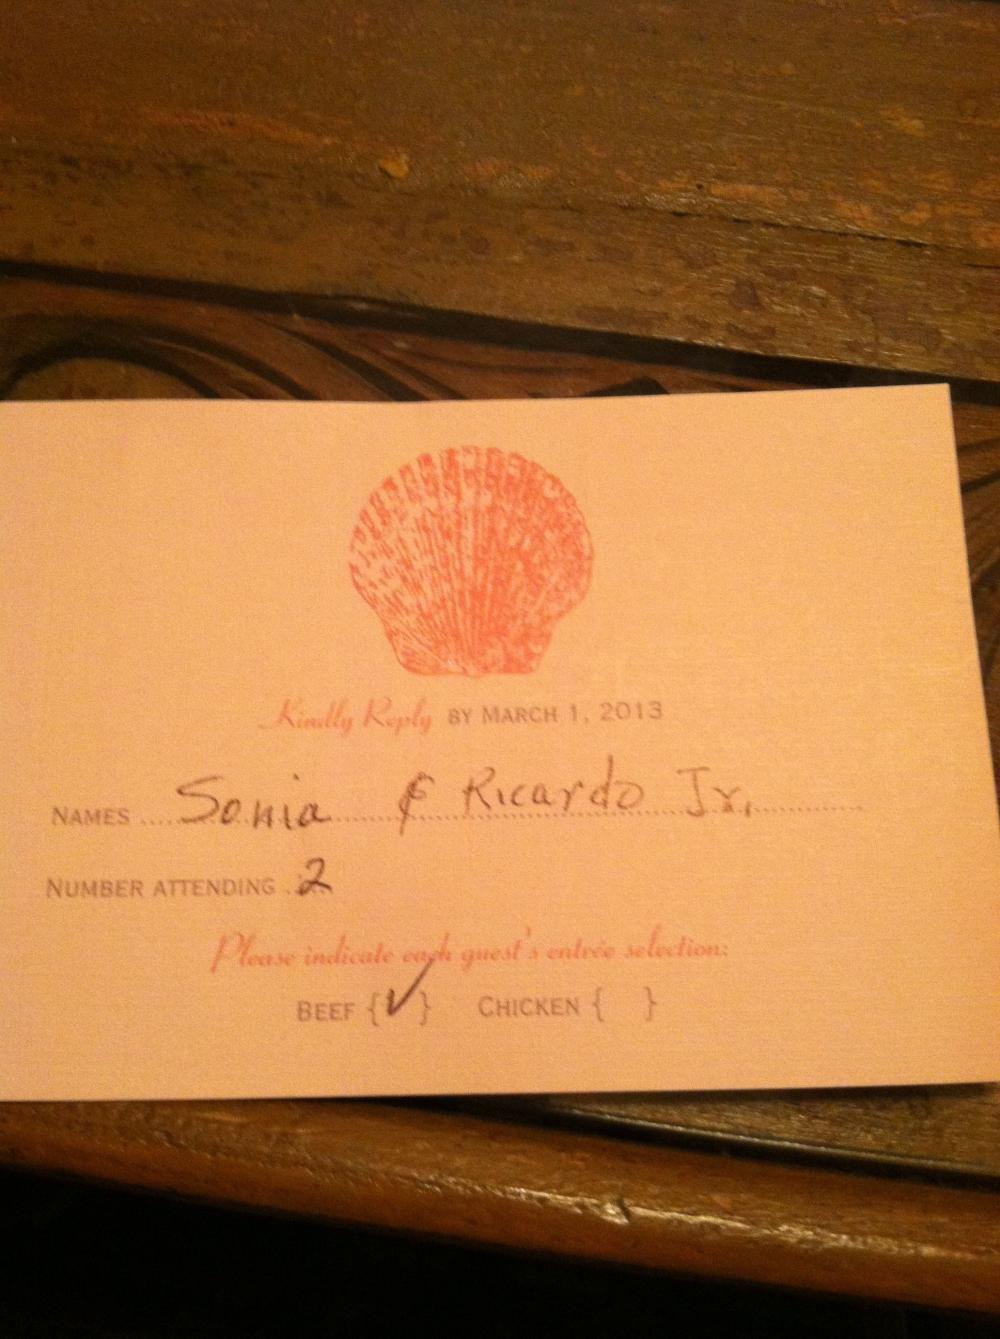 Kindly Reply BY MARCH 1, 2013
NAMES Sonia & Ricardo Jr.
NUMBER ATTENDING 2
Please indicate each guest's entrée selection:
BEEF {✓} CHICKEN { }